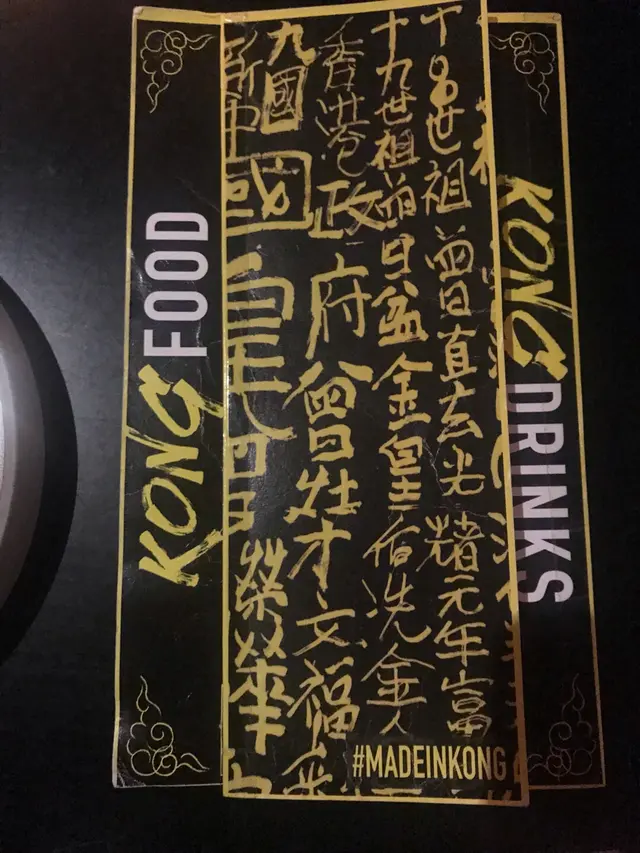 KONG FOOD
世祖曾日直玄光緒元年富
十九世祖曾日盆金皇后洗金人
香港政府曾灶才文福
九國
新中國皇
榮華
#MADEINKONG
KONG DRINKS